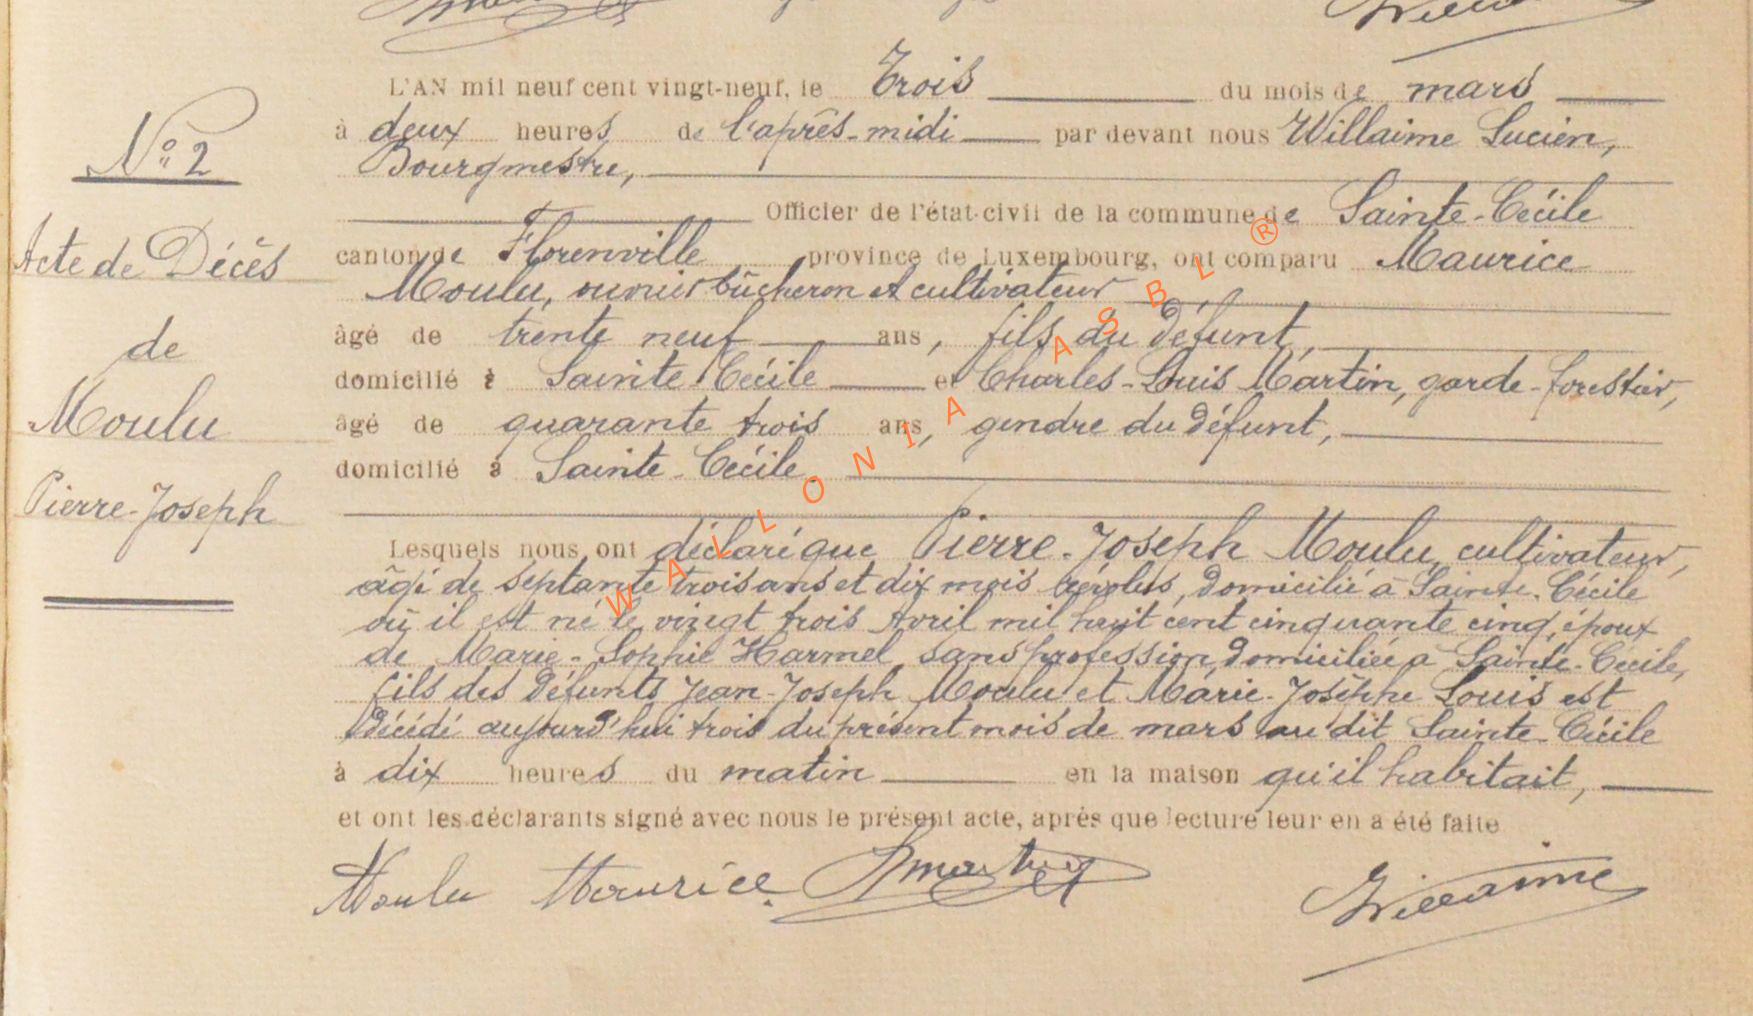 L'AN mil neuf cent vingt-neuf, le Trois du mois de mars
à deux heures de l'après-midi par devant nous Willaime Lucien,
Bourgmestre,
Officier de l'état-civil de la commune de Sainte-Cécile
canton de Florenville province de Luxembourg, ont comparu Maurice
Moulu, ouvrier bûcheron et cultivateur
âgé de trente neuf ans, fils du défunt,
domicilié à Sainte Cécile et Charles-Louis Martin, garde-forestier,
âgé de quarante trois ans, gendre du défunt,
domicilié à Sainte-Cécile.
Lesquels nous ont déclaré que Pierre-Joseph Moulu, cultivateur,
âgé de septante trois ans et dix mois révolus, domicilié à Sainte-Cécile
où il est né le vingt trois Avril mil huit cent cinquante cinq, époux
de Marie-Sophie Harmel sans profession, domiciliée à Sainte-Cécile,
fils des défunts Jean-Joseph Moulu et Marie-Josèphe Louis est
décédé aujourd'hui trois du présent mois de mars au dit Sainte-Cécile
à dix heures du matin en la maison qu'il habitait,
et ont les déclarants signé avec nous le présent acte, après que lecture leur en a été faite
Moulu Maurice. Martin Willaime
No 2
Acte de Décès
de
Moulu
Pierre-Joseph
WALLONIA ASBL ®